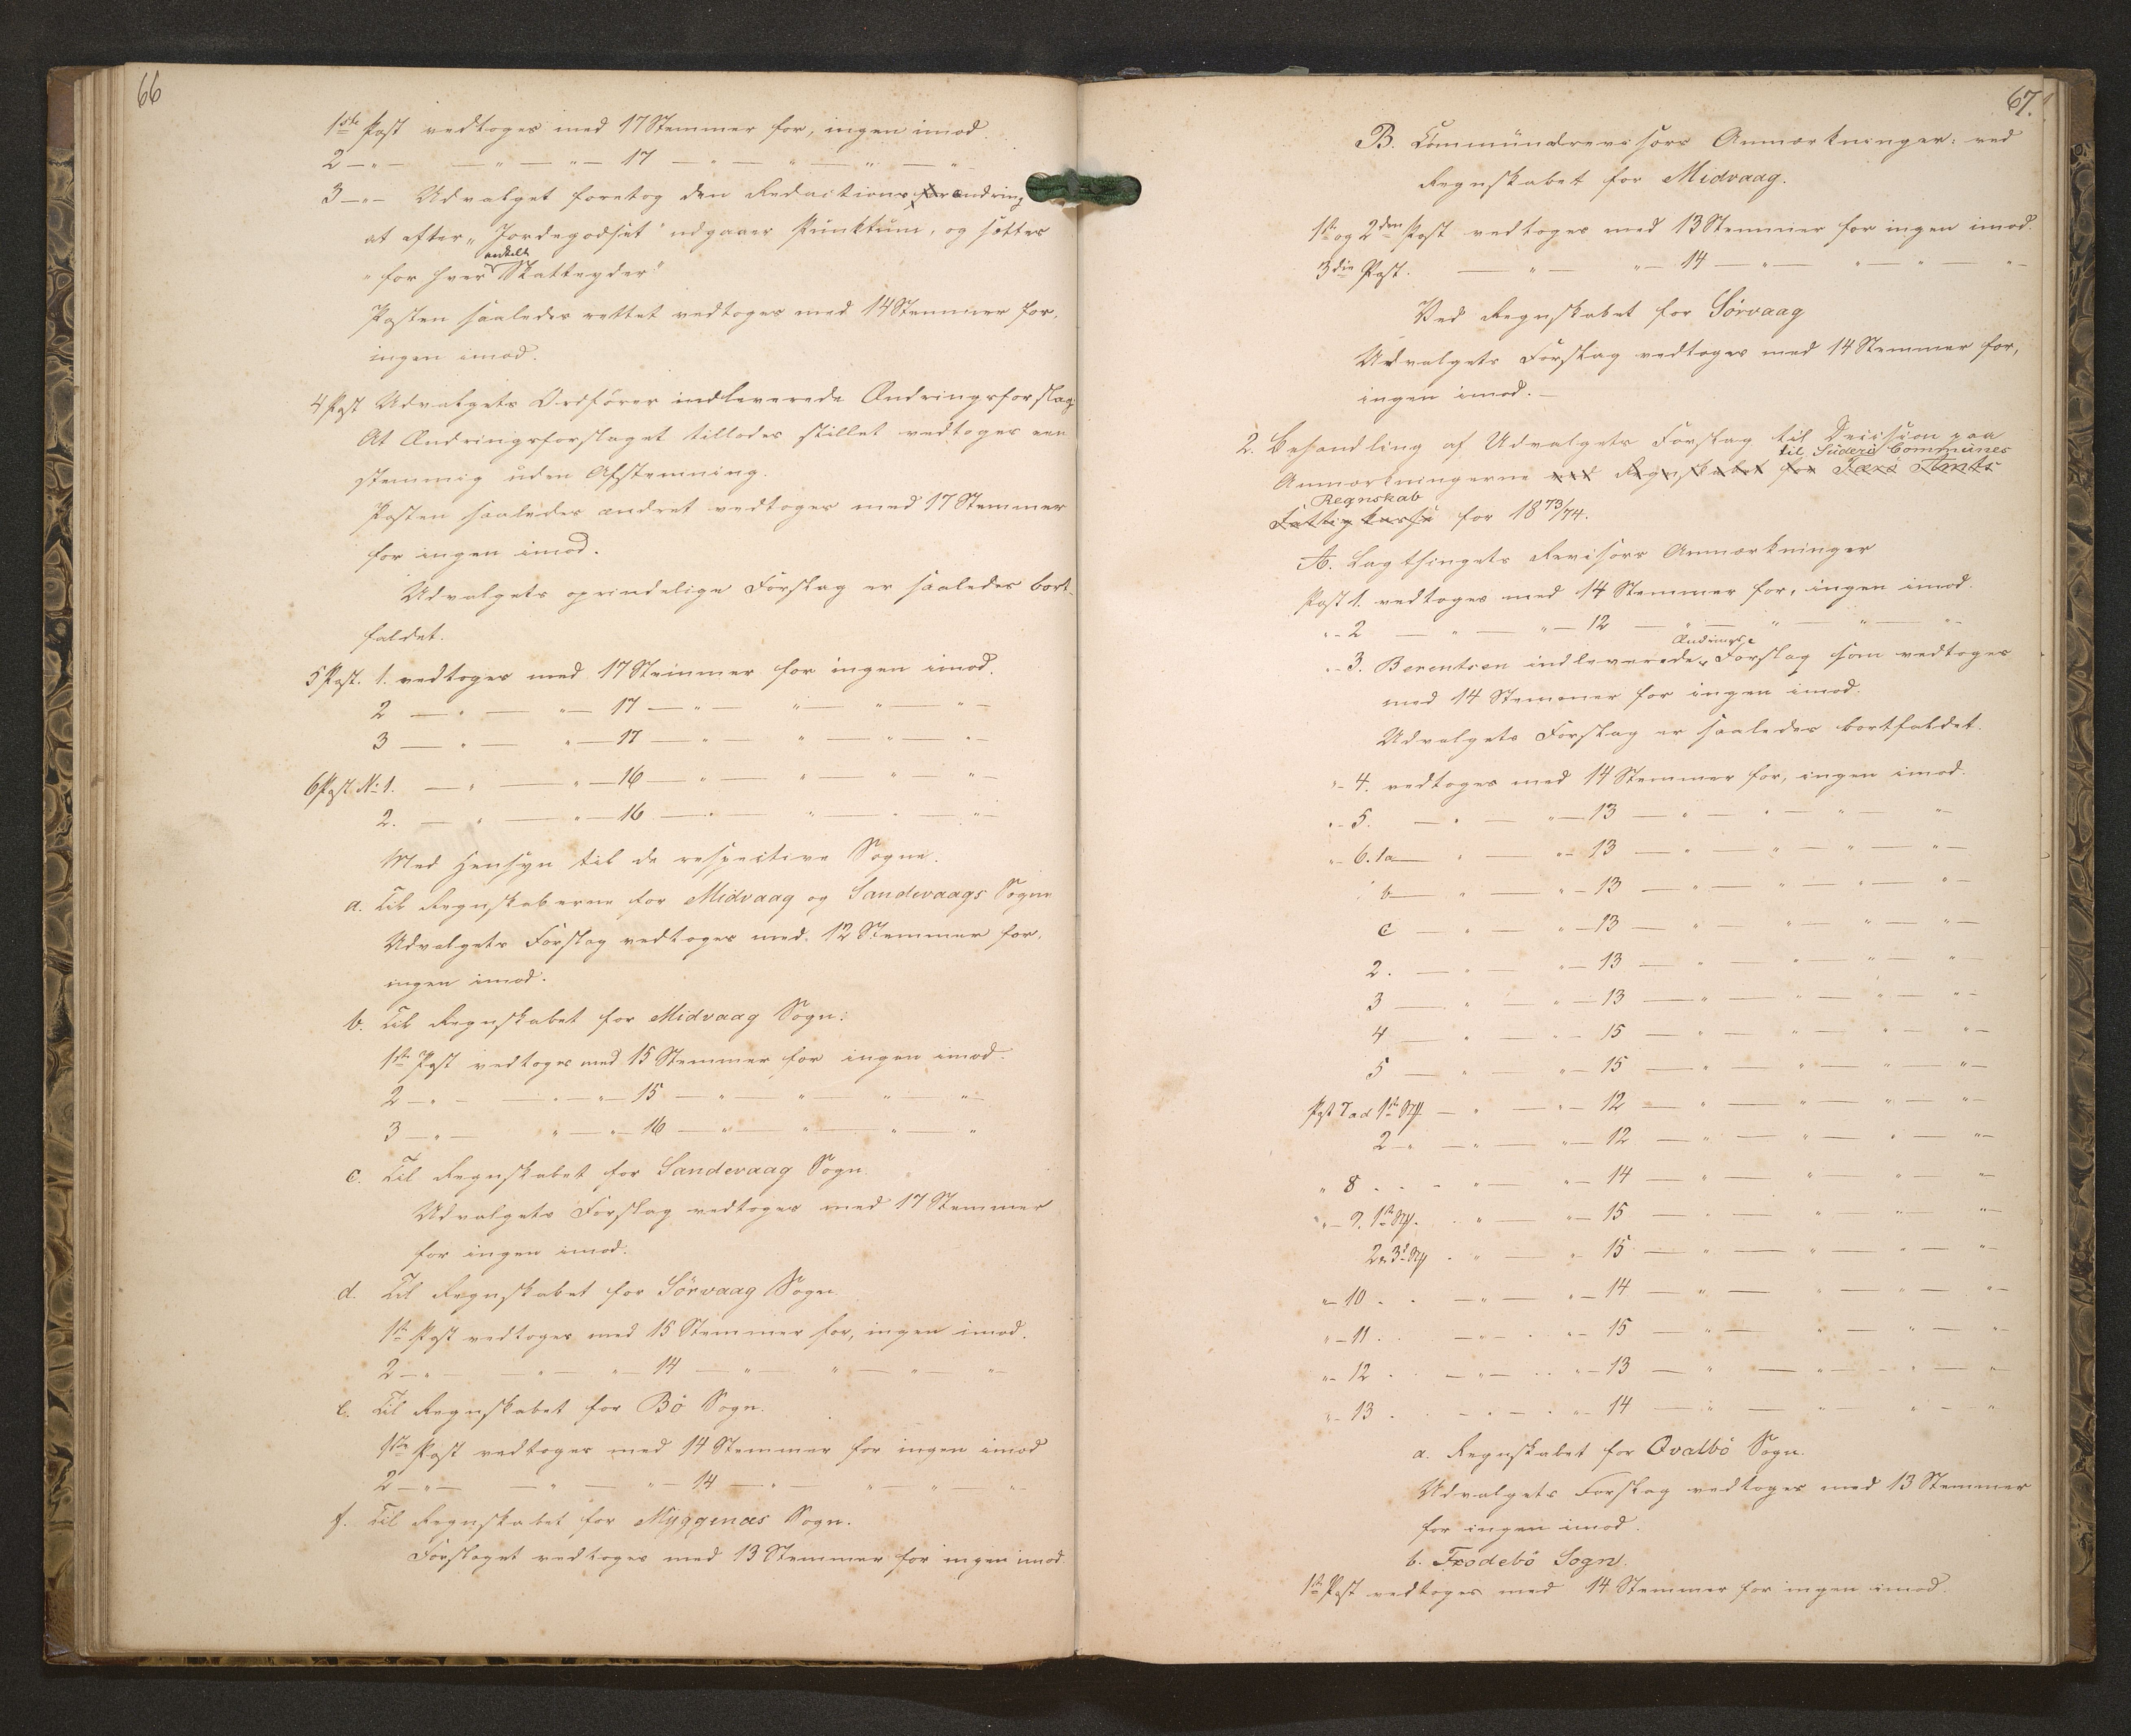 66
1ste Post vedtoges med 17 Stemmer for, ingen imod.
2 — " — — " — " — 17 — " — " — " — "
3 — " — Udvalget foretog den Redactionsforandring
at efter "Jordegodset" udgaaer Punktum, og sættes
enkelt
"for hver Skatteyder"
Posten saaledes rettet vedtoges med 14 Stemmer for,
ingen imod.
4 Post Udvalgets Ordfører indleverede Ændringsforslag
At Ændringsforslaget tillodes stillet vedtoges een
stemmig uden Afstemning.
Posten saaledes ændret vedtoges med 17 Stemmer
for ingen imod.
Udvalgets oprindelige Forslag er saaledes bort-
faldet.
5 Post. 1. vedtoges med 17 Stemmer for ingen imod.
2 — " — " — 17 — " — " — " — " —
3 — " — " — 17 — " — " — " — " —
6 Post No 1. — " — " — 16 — " — " — " — " —
2. — " — " — 16 — " — " — " — " —
Med Hensyn til de respective Sogne.
a. Til Regnskaberne for Midvaag og Sandevaags Sogne
Udvalgets Forslag vedtoges med 12 Stemmer for,
ingen imod.
b. Til Regnskabet for Midvaag Sogn.
1ste Post vedtoges med 15 Stemmer for ingen imod.
2 — " — — " — " — 15 — " — " — " — " —
3 — " — " — " — 16 — " — " — " — "
c. Til Regnskabet for Sandevaag Sogn.
Udvalgets Forslag vedtoges med 17 Stemmer
for ingen imod.
d. Til Regnskabet for Sörvaag Sogn.
1ste Post vedtoges med 15 Stemmer for, ingen imod.
2 — " — — " — " — 14 — " — " — " — " —
e. Til Regnskabet for Bö Sogn.
1ste Post vedtoges med 14 Stemmer for ingen imod
2 — " — — " — " — 14 — " — " — " — " —
f. Til Regnskabet for Myggenæs Sogn.
Forslaget vedtoges med 13 Stemmer for ingen imod.
67.
B. Communerevisors Anmærkninger: ved
Regnskabet for Midvaag.
1ste og 2den Post vedtoges med 13 Stemmer for ingen imod.
3die Post. — " — " — 14 — " — " — " — " —
Ved Regnskabet for Sörvaag
Udvalgets Forslag vedtoges med 14 Stemmer for,
ingen imod. —
2. Behandling af Udvalgets Forslag til Decision paa
til Süderö Communes
Anmærkningerne ved Regnskabet for Færö Amts
Regnskab
Fattigkasse for 1873/74.
A. Lagthingets Revisors Anmærkninger
Post 1. vedtoges med 14 Stemmer for, ingen imod.
" - 2 — " — " — 12 — " — " — " — " —
Ændrings
" - 3. Berentsen indleverede Forslag som vedtoges
med 14 Stemmer for ingen imod.
Udvalgets Forslag er saaledes bortfaldet.
" - 4. vedtoges med 14 Stemmer for, ingen imod.
" - 5. — " — " — 13 — " — " — " — " —
" - 6. 1a — " — " — 13 — " — " — " — " —
b — " — " — 13 — " — " — " — " —
c — " — " — 13 — " — " — " — " —
2. — " — " — 13 — " — " — " — " —
3 — " — " — 13 — " — " — " — " —
4 — " — " — 15 — " — " — " — " —
5 — " — " — 15 — " — " — " — " —
Post 7 ad 1ste — " — " — 12 — " — " — " — " —
2 " — " — " — 12 — " — " — " — " —
" 8 . . — " — " — 14 — " — " — " — " —
" - 9. 1ste . " — " — 15 — " — " — " — " —
2 . " — " 15 — " — " — " — " —
" - 10 . . — " — " — 14 — " — " — " — " —
" - 11 . . — " — . " — 15 — " — " — " — " —
" - 12 . . — " — . . " — 13 — " — " — " — " —
" - 13 . . — " — . " — 14 — " — " — " — "
a. Regnskabet for Qvalbö Sogn.
Udvalgets Forslag vedtoges med 13 Stemmer
for ingen imod.
b. Frodebö Sogn.
1ste Post vedtoges med 14 Stemmer for ingen imod.